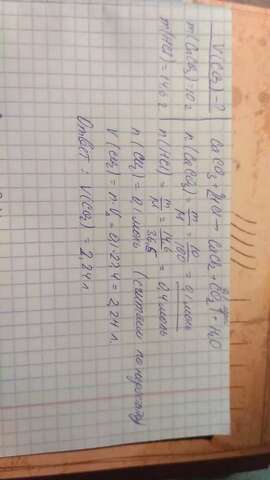 V(CO₂) - ?
m(CaCO₃) = 10 г
m(HCl) = 14,6 г
CaCO₃ + 2HCl → CaCl₂ + CO₂↑ + H₂O
n(CaCO₃) = m/M = 10/100 = 0,1 моль
n(HCl) = m/M = 14,6/36,5 = 0,4 моль
n(CO₂) = 0,1 моль (считаем по
V(CO₂) = n·Vₘ = 0,1·22,4 = 2,24 л.
Ответ: V(CO₂) = 2,24 л